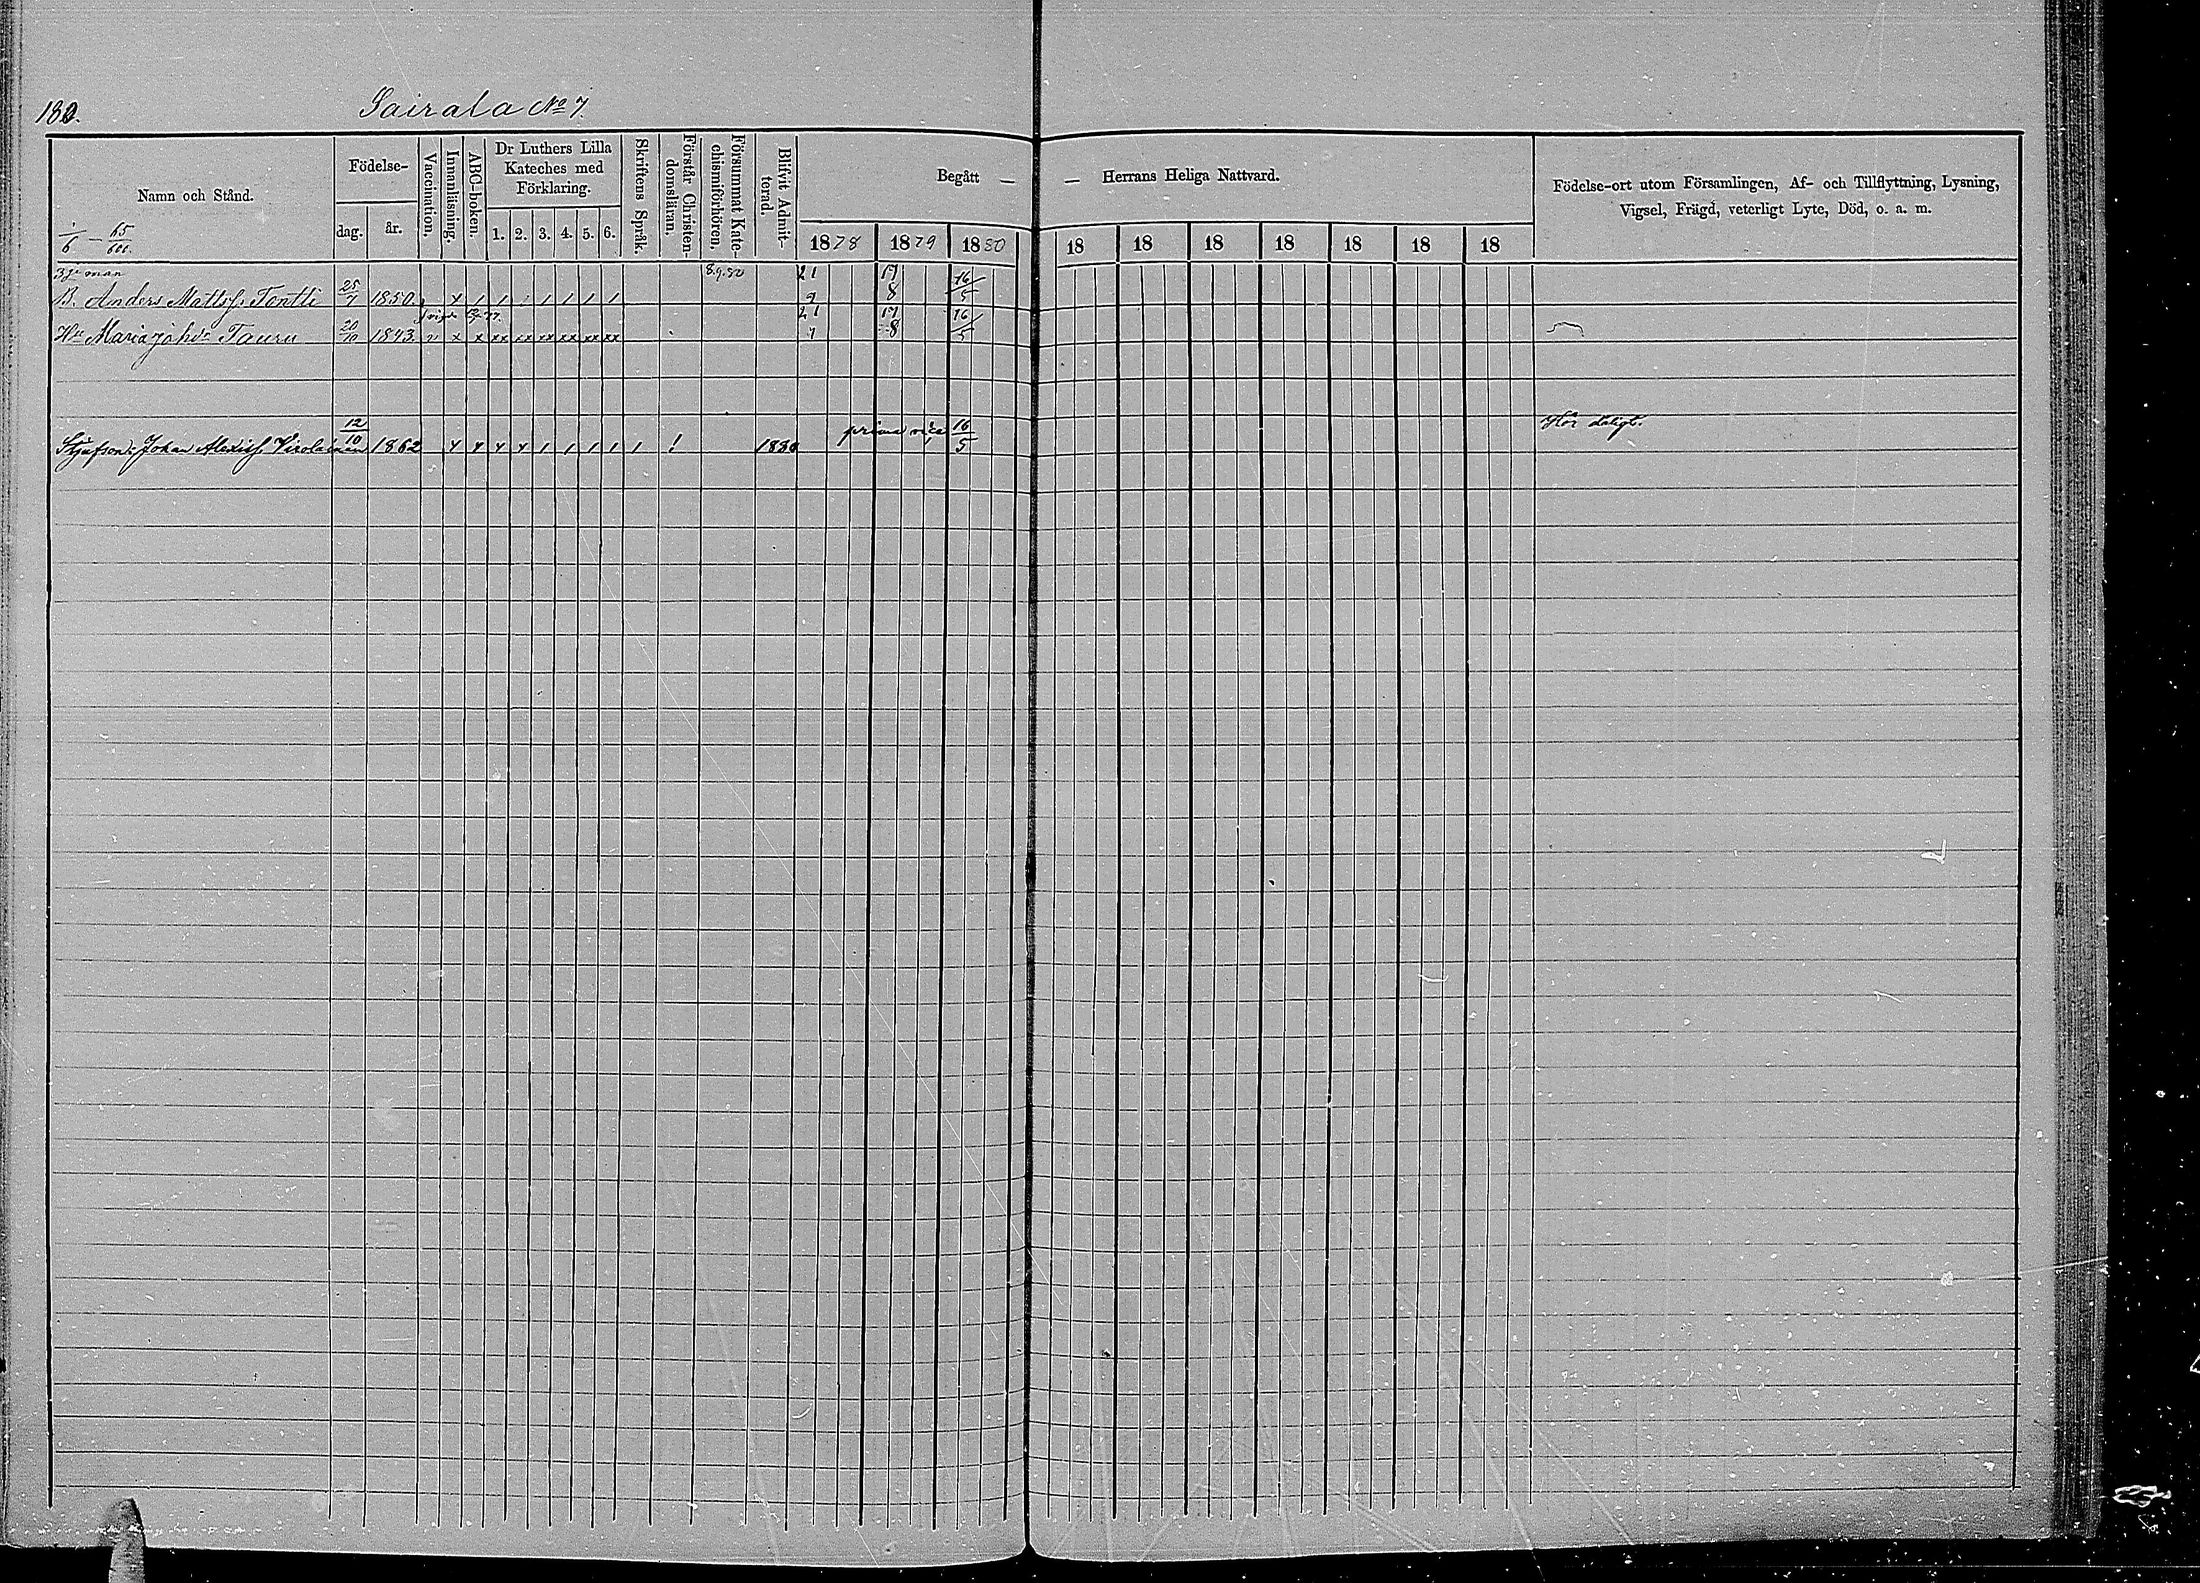 180.
Sairala No 7.
Namn och Stånd.
Födelse-
dag.
år.
Vaccination.
Innanläsning.
ABC-boken.
Dr Luthers Lilla
Kateches med
Förklaring.
1. 2. 3. 4. 5. 6.
Skriftens Språk.
Förstår Christen-
domsläran.
Försummat Kate-
chismiförhören.
Blifvit Admit-
terad.
Begått —
— Herrans Heliga Nattvard.
1878 1879 1880 18 18 18 18 18 18 18
Födelse-ort utom Församlingen, Af- och Tillflyttning, Lysning,
Vigsel, Frägd, veterligt Lyte, Död, o. a. m.
1/6 — 65/600.
B. Anders Mattss. Tontti 25/7 1850
8.9.80
21 17/8 16/5
Hu Maria Johdr Tauru 20/10 1843. v x x xx xx xx xx xx xx
21 17/8 16/5
Styfson: Johan Alexiss. Virolainen 12/10 1862
1880 prima vice 16/5
Hör dåligt.